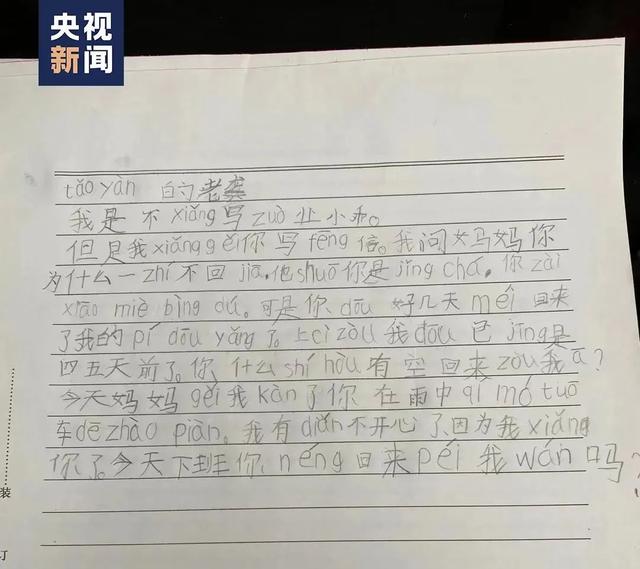 央视
新闻
tǎo yàn 的老龚
我是不xiǎng写zuò业小乖。
但是我xiǎng gěi你写fēng信。我问妈妈你
为什么一zhí不回jiā,他shuō你是jǐng chá,你zài
xiāo miè bìng dú。可是你dōu好几天méi回来
了我的pí dōu yǎng了。上cì zòu我dōu已jīng是
四五天前了。你什么shí hòu有空回来zòu我ā?
今天妈妈gěi我kàn了你在雨中qí mó tuō
车dē zhào piàn。我有diǎn不开心了,因为我xiǎng
你了。今天下班你néng回来péi我wán吗?
装
订